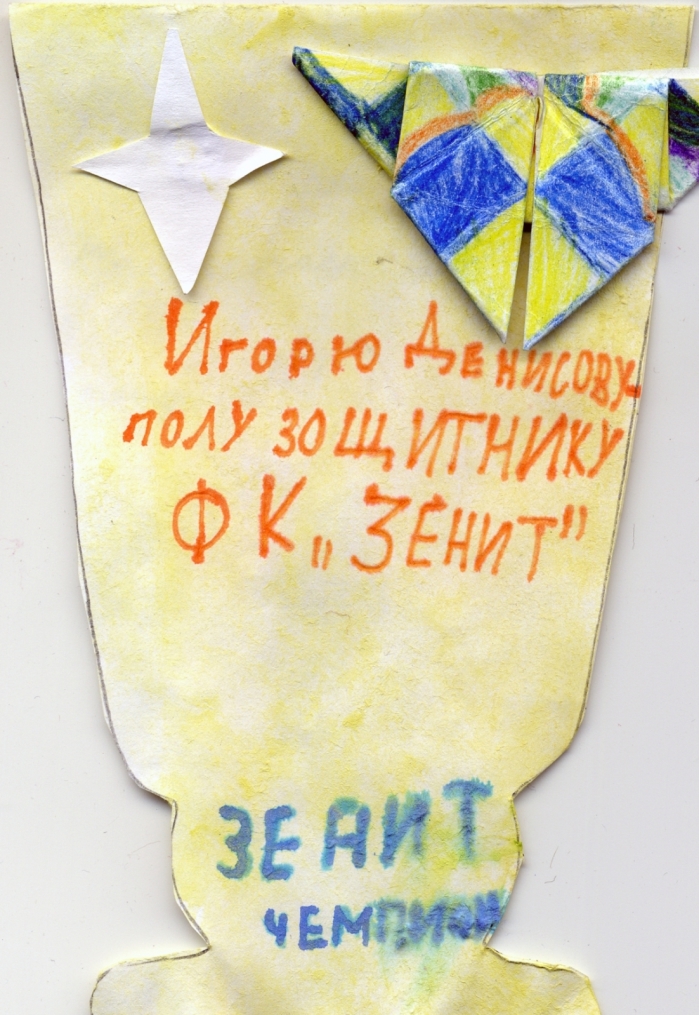 Игорю Денисову-
полузощитнику
ФК „ЗЕНИТ"
ЗЕНИТ
чемпион